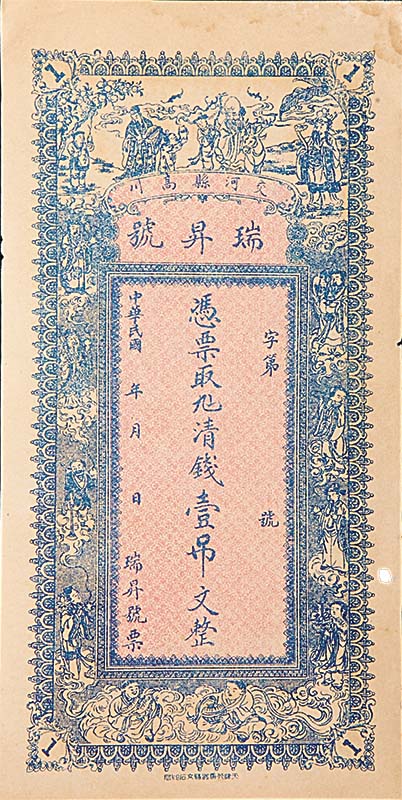 1
1
交河縣高川
瑞昇號
字第 號
憑票取九清錢壹吊文整
中華民國 年 月 日 瑞昇號票
1
1